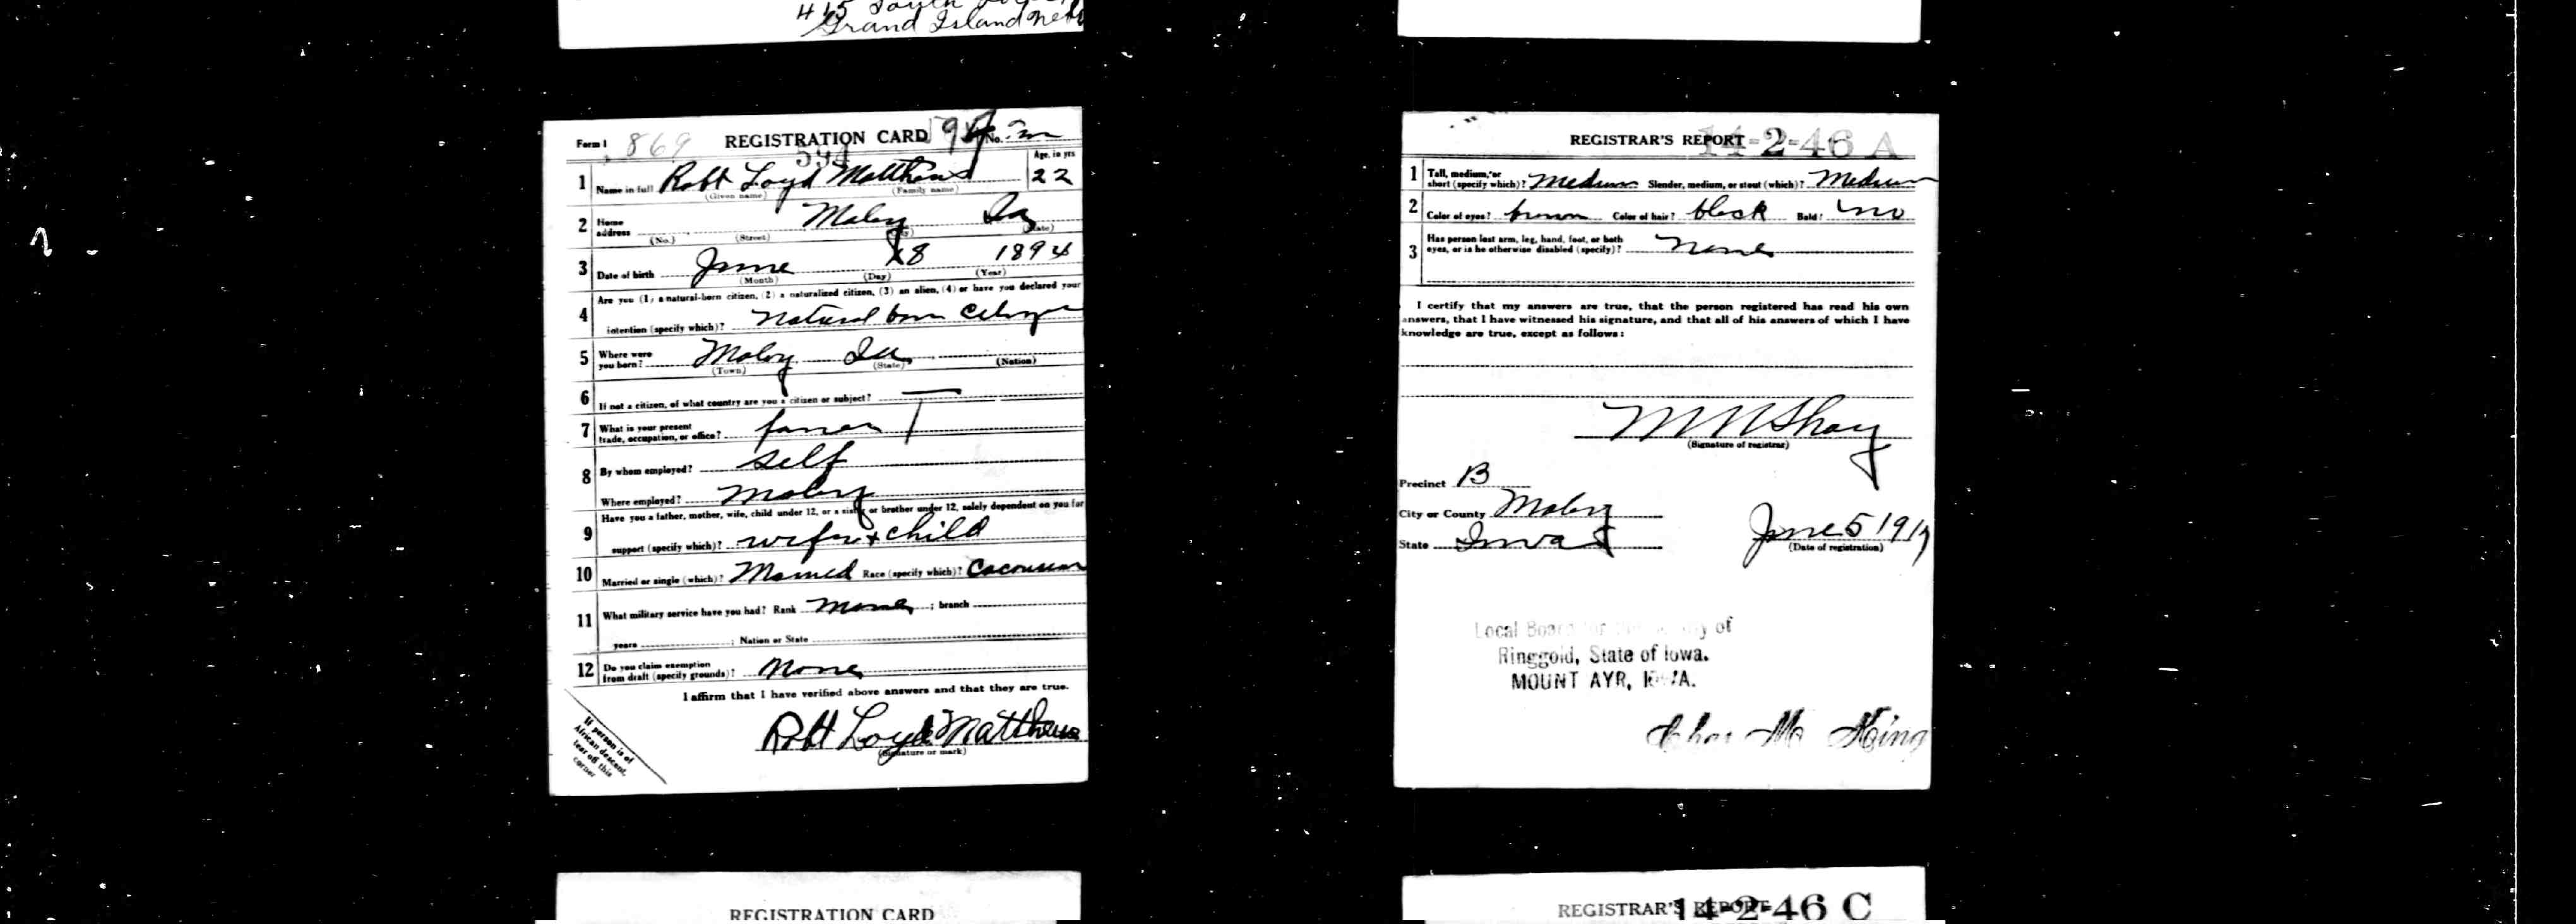 415 South
Grand Island Neb
Form 1 869 REGISTRATION CARD No.
594
1 Name in full Robt Loyd Matthews Age, in yrs 22
(Given name) (Family name)
2 Home address Maloy Ia
(No.) (Street) (City) (State)
3 Date of birth June 18 1894
(Month) (Day) (Year)
Are you (1) a natural-born citizen, (2) a naturalized citizen, (3) an alien, (4) or have you declared your
4 intention (specify which)? natural born citizen
5 Where were you born? Maloy Ia
(Town) (State) (Nation)
6 If not a citizen, of what country are you a citizen or subject?
7 What is your present trade, occupation, or office? farmer
8 By whom employed? self
Where employed? Maloy
Have you a father, mother, wife, child under 12, or a sister or brother under 12, solely dependent on you for
9 support (specify which)? wife + child
10 Married or single (which)? Married Race (specify which)?
11 What military service have you had? Rank None ; branch
years ; Nation or State
12 Do you claim exemption from draft (specify grounds)? None
I affirm that I have verified above answers and that they are true.
Robt Loyd Matthews
(Signature or mark)
If person is of
African descent,
tear off this
corner
REGISTRAR'S REPORT 14-2-46 A
1 Tall, medium, or short (specify which)? Medium Slender, medium, or stout (which)? Medium
2 Color of eyes? brown Color of hair? black Bald? no
3 Has person lost arm, leg, hand, foot, or both eyes, or is he otherwise disabled (specify)? none
I certify that my answers are true, that the person registered has read his own
answers, that I have witnessed his signature, and that all of his answers of which I have
knowledge are true, except as follows:
M N Shay
(Signature of registrar)
Precinct B
City or County Maloy
State Iowa June 5 1917
(Date of registration)
Local Board for of
Ringgold, State of Iowa.
MOUNT AYR, IOWA.
Chas M King
REGISTRATION CARD
REGISTRAR'S REPORT 14-2-46 C